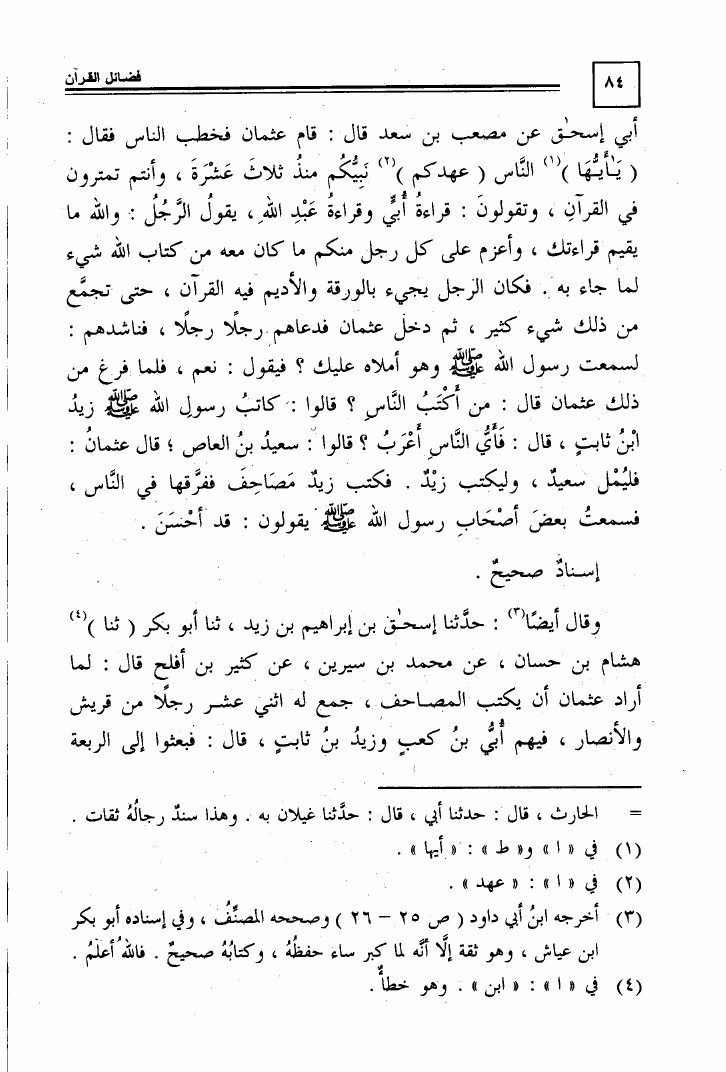 ٨٤
فضائل القرآن
أبي إسحٰق عن مصعب بن سعد قال : قام عثمان فخطب الناس فقال :
( يَـٰأَيُّهَا )(١) النَّاس ( عهدكم )(٢) نَبِيُّكُم منذُ ثلاثَ عَشْرَةَ ، وأنتم تمترون
في القرآنِ ، وتقولونَ : قراءةُ أُبَيٍّ وقراءةُ عَبْدِ اللهِ ، يقولُ الرَّجُلُ : والله ما
يقيم قراءتك ، وأعزم على كل رجل منكم ما كان معه من كتاب الله شيء
لما جاء به . فكان الرجل يجيء بالورقة والأديم فيه القرآن ، حتى تجمَّع
من ذلك شيء كثير ، ثم دخل عثمان فدعاهم رجلًا رجلًا ، فناشدهم :
لسمعت رسول الله ﷺ وهو أملاه عليك ؟ فيقول : نعم ، فلما فرغ من
ذلك عثمان قال : من أَكْتَبُ النَّاسِ ؟ قالوا : كاتبُ رسولِ الله ﷺ زيدُ
ابْنُ ثابتٍ ، قال : فَأَيُّ النَّاسِ أَعْرَبُ ؟ قالوا : سعيدُ بنُ العاص ؛ قال عثمانُ :
فليُمْل سعيدٌ ، وليكتب زيْدٌ . فكتب زيدٌ مَصَاحِفَ ففرَّقها في النَّاس ،
فسمعتُ بعضَ أصْحَابِ رسول الله ﷺ يقولون : قد أحْسَنَ .
إسنادٌ صحيحٌ .
وقال أيضًا(٣) : حدَّثنا إسحٰق بن إبراهيم بن زيد ، ثنا أبو بكر ( ثنا )(٤)
هشام بن حسان ، عن محمد بن سيرين ، عن كثير بن أفلح قال : لما
أراد عثمان أن يكتب المصاحف ، جمع له اثني عشر رجلًا من قريش
والأنصار ، فيهم أُبَيُّ بنُ كعبٍ وزيدُ بنُ ثابتٍ ، قال : فبعثوا إلى الربعة
= الحارث ، قال : حدثنا أبي ، قال : حدَّثنا غيلان به . وهذا سندٌ رجالُهُ ثقات .
(١) في « ا » و« ط » : « أيها » .
(٢) في « ا » : « عهد » .
(٣) أخرجه ابنُ أبي داود ( ص ٢٥ – ٢٦ ) وصححه المصنِّفُ ، وفي إسناده أبو بكر
ابن عياش ، وهو ثقة إلَّا أنَّه لما كبر ساء حفظُهُ ، وكتابُهُ صحيحٌ . فاللهُ أعلمُ .
(٤) في « ا » : « ابن » . وهو خطأٌ .